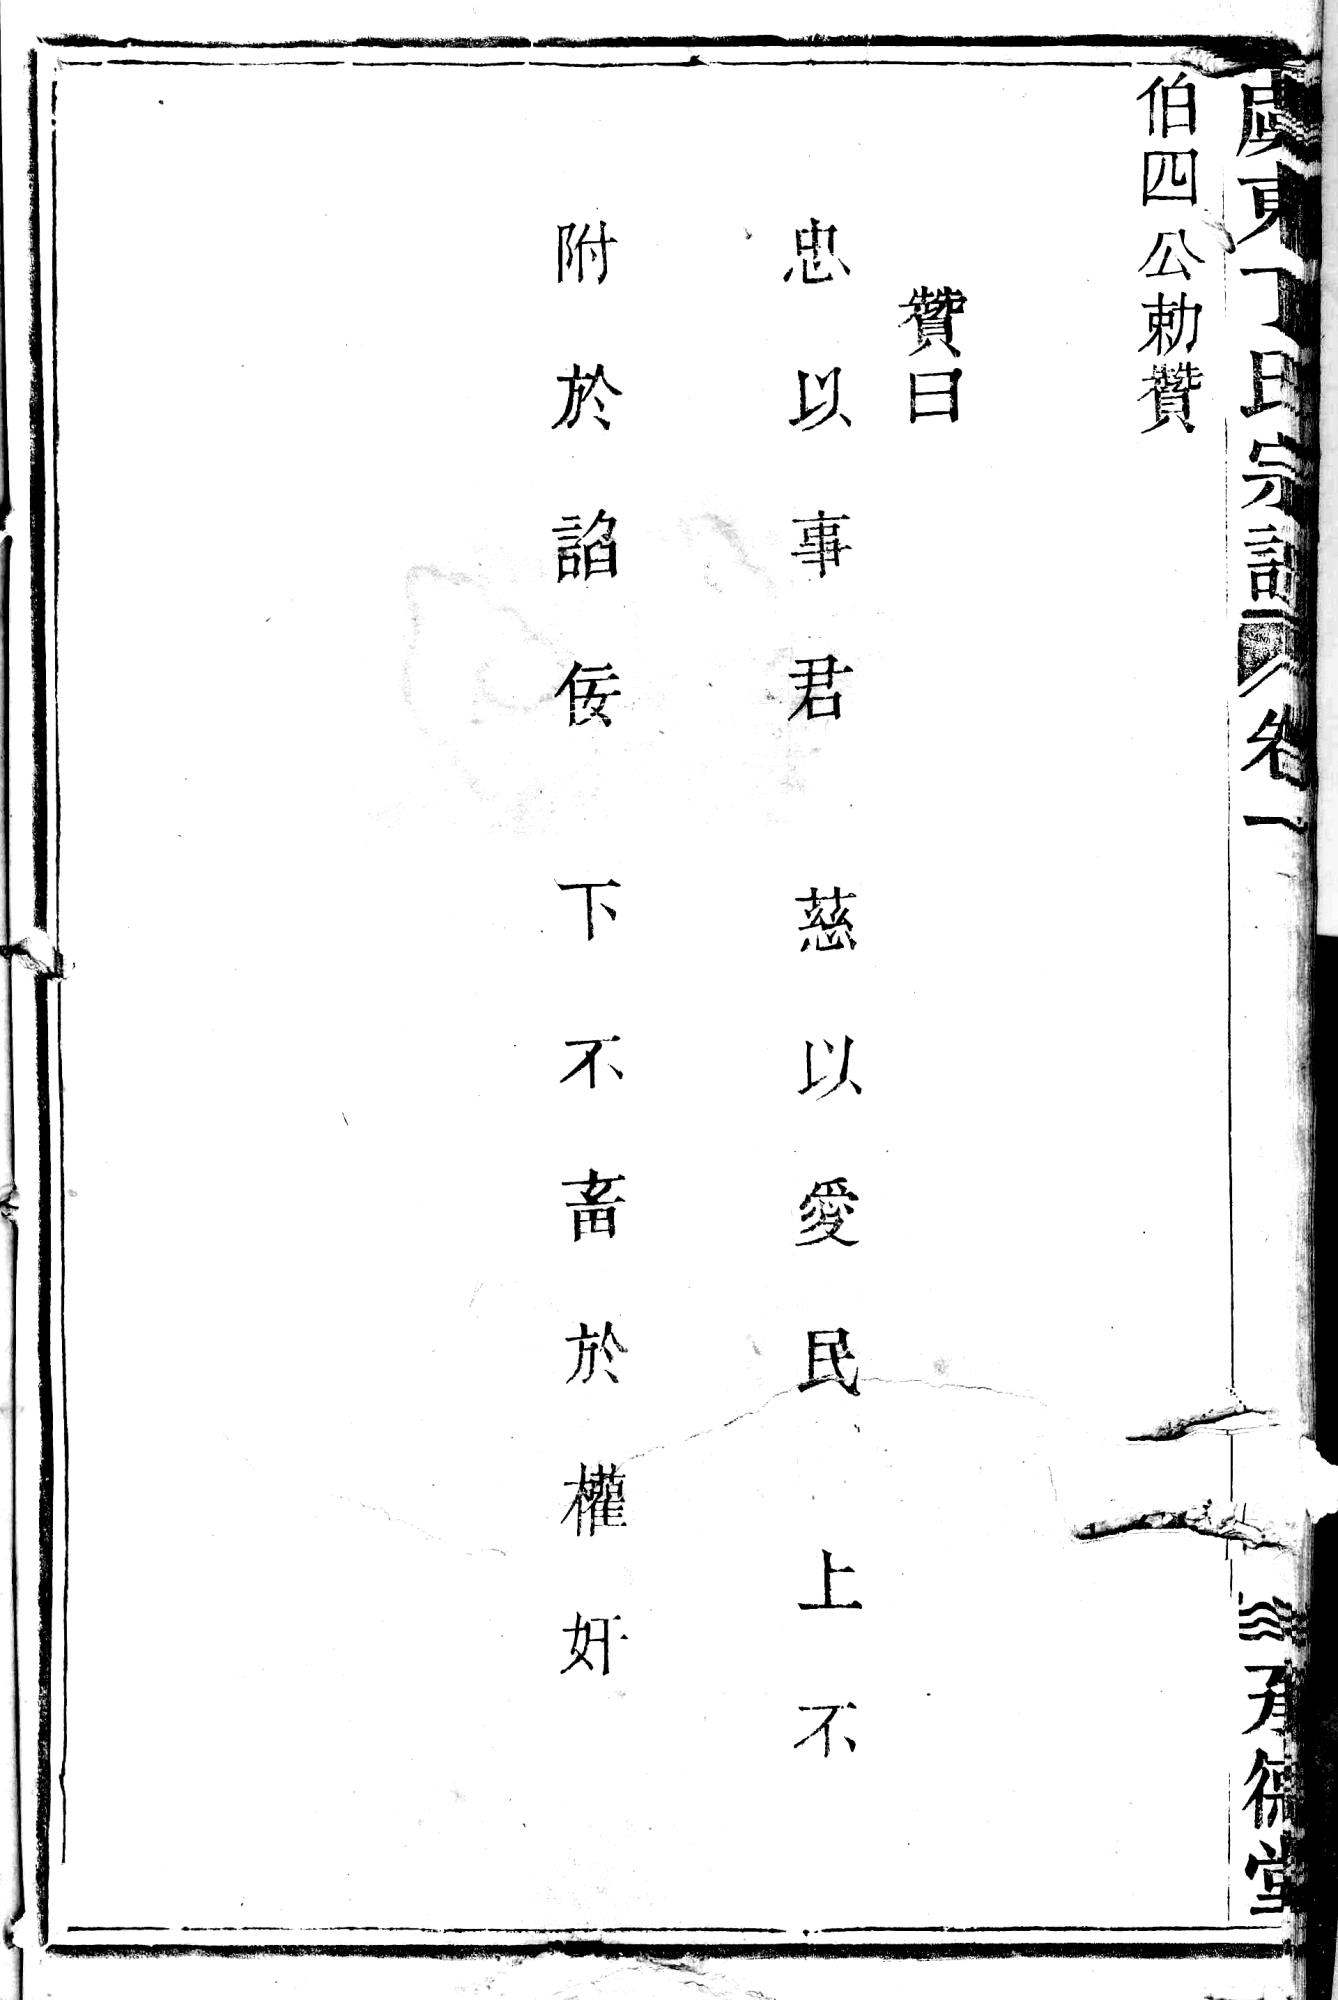 虞東丁氏宗譜 卷一 承德堂
伯四公勅贊
贊曰
忠以事君 慈以愛民 上不
附於諂佞 下不畜於權奸